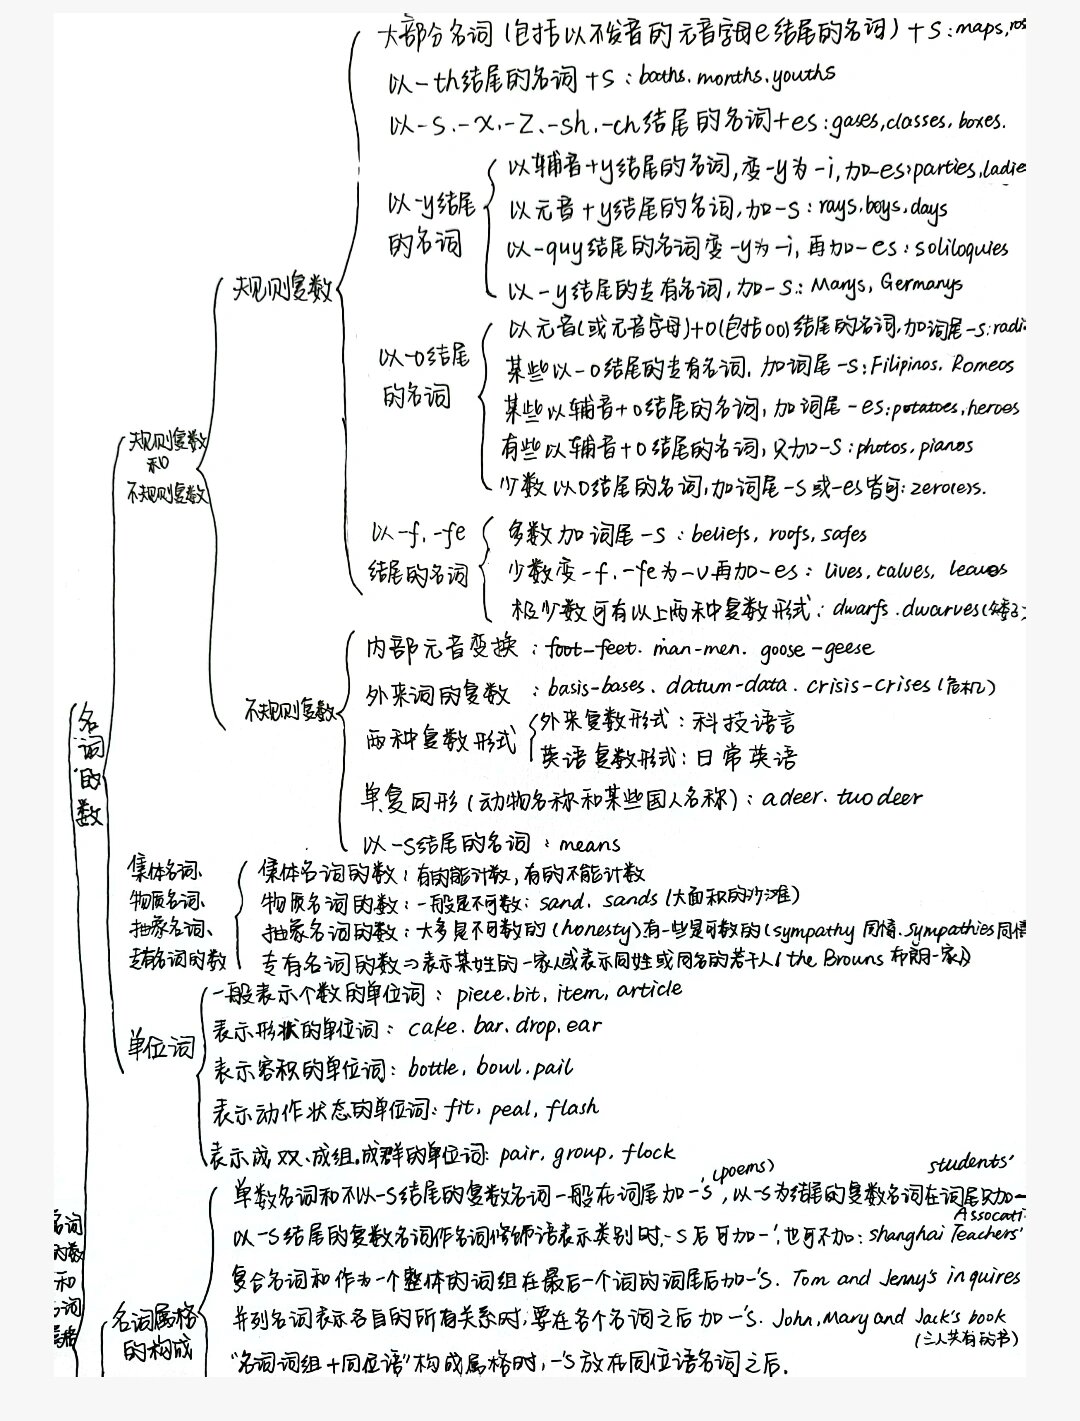 大部分名词(包括以不发音的元音字母e结尾的名词)+s:maps,ros
以-th结尾的名词+s:baths.months.youths
以-s.-x.-z.-sh.-ch结尾的名词+es:gases,classes,boxes.
以-y结尾的名词
以辅音+y结尾的名词,变-y为-i,加-es:parties,ladie
以元音+y结尾的名词,加-s:rays,boys,days
以-quy结尾的名词变-y为-i,再加-es:soliloquies
以-y结尾的专有名词,加-s:Marys,Germanys
规则复数
以-o结尾的名词
以元音(或元音字母)+o(包括oo)结尾的名词,加词尾-s:radi
某些以-o结尾的专有名词.加词尾-s:Filipinos.Romeos
某些以辅音+o结尾的名词,加词尾-es:potatoes,heroes
有些以辅音+o结尾的名词,只加-s:photos,pianos
少数以o结尾的名词,加词尾-s或-es皆可:zero(e)s.
规则复数和不规则复数
以-f,-fe结尾的名词
多数加词尾-s:beliefs,roofs,safes
少数变-f,-fe为-v再加-es:lives,calves,leaves
极少数可有以上两种复数形式:dwarfs.dwarves(矮子)
不规则复数
内部元音变换:foot-feet.man-men.goose-geese
外来词的复数:basis-bases.datum-data.crisis-crises(危机)
两种复数形式
外来复数形式:科技语言
英语复数形式:日常英语
单复同形(动物名称和某些国人名称):a deer.two deer
以-s结尾的名词:means
名词的数
集体名词、物质名词、抽象名词、专有名词的数
集体名词的数:有的能计数,有的不能计数
物质名词的数:一般是不可数:sand.sands(大面积的沙滩)
抽象名词的数:大多是不可数的(honesty)有一些是可数的(sympathy同情.sympathies同情
专有名词的数⇒表示某姓的一家人或表示同姓或同名的若干人(the Browns布朗一家)
单位词
一般表示个数的单位词:piece.bit,item,article
表示形状的单位词:cake.bar.drop.ear
表示容积的单位词:bottle,bowl.pail
表示动作状态的单位词:fit,peal,flash
表示成双、成组.成群的单位词:pair,group,flock
(poems) students'
单数名词和不以-s结尾的复数名词一般在词尾加-'s,以-s为结尾的复数名词在词尾只加-
Assocati
以-s结尾的复数名词作名词修饰语表示类别时,-s后可加-',也可不加:shanghai Teachers'
复合名词和作为一个整体的词组在最后一个词的词尾后加-'s.Tom and Jenny's inquires
并列名词表示各自的所有关系时,要在各个名词之后加-'s.John,Mary and Jack's book
(三人共有的书)
"名词词组+同位语"构成属格时,-'s放在同位语名词之后.
名词属格的构成
名词的数和名词属格